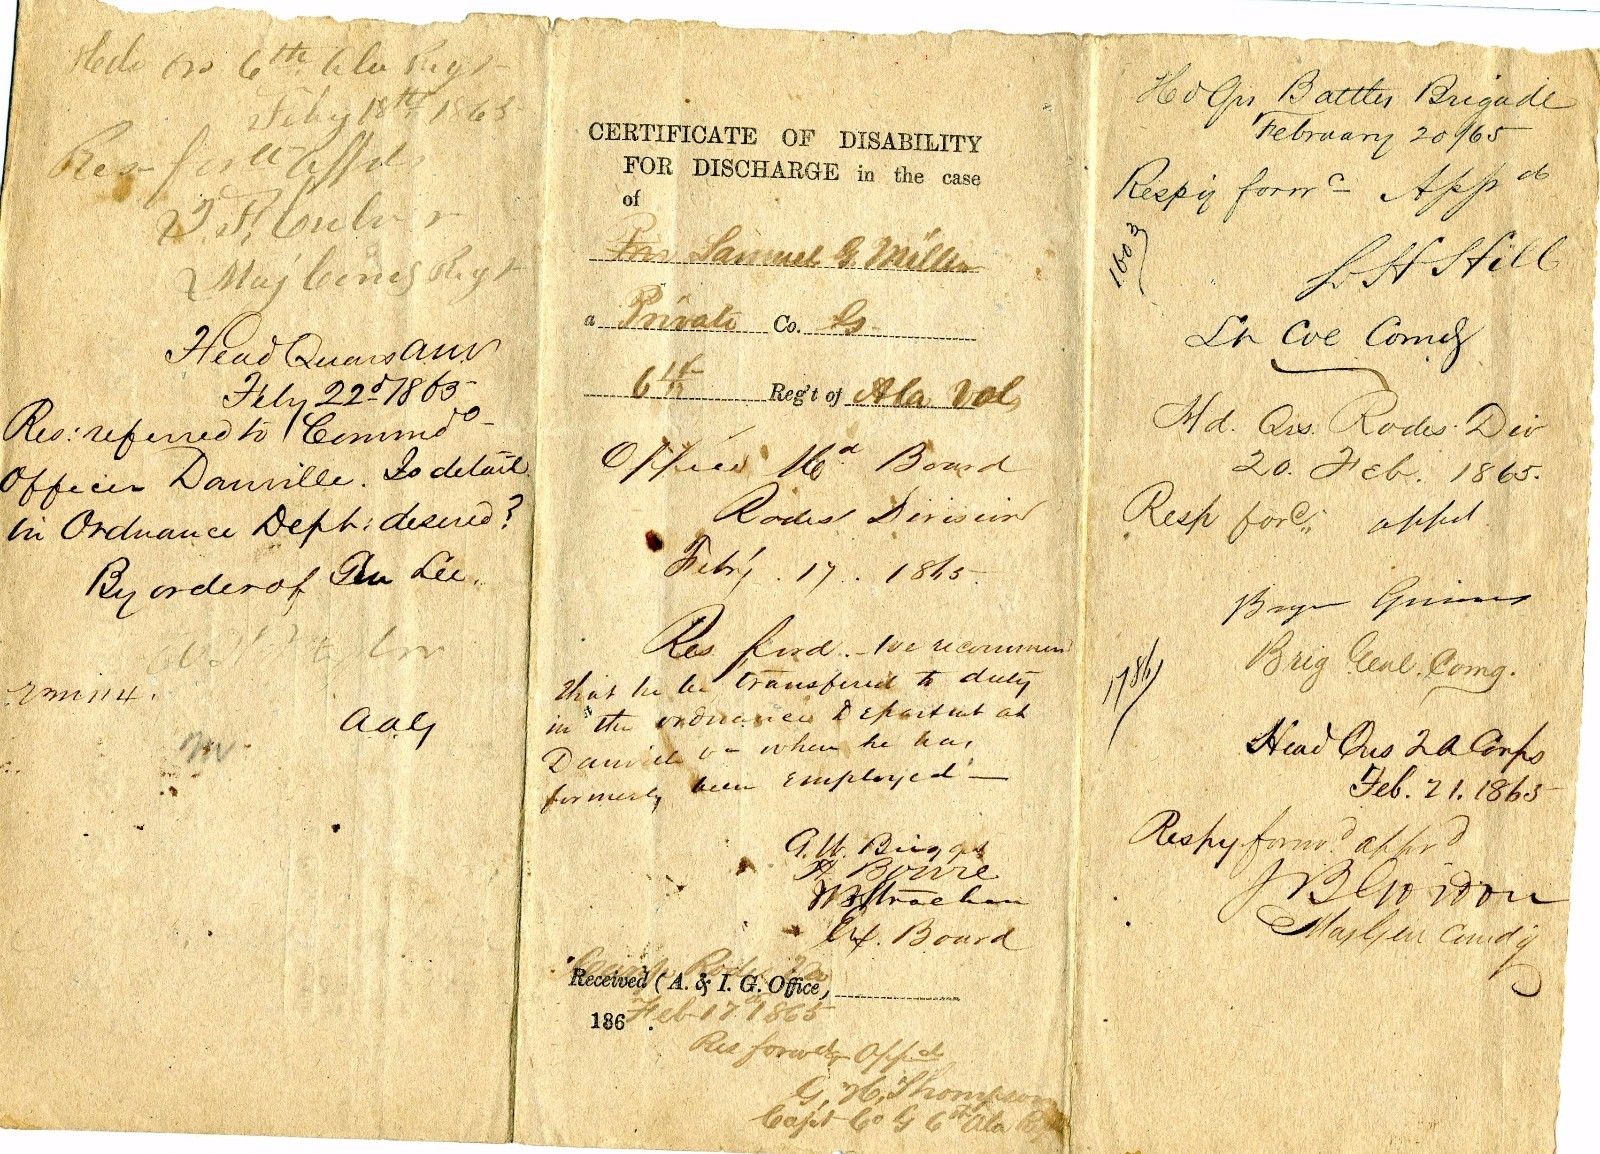 Hd Qrs 6th Ala Regt
Feby 18th 1865
Res ford Appd
Culver
Maj Comdg Regt
Head Quars ANV
Feby 22d 1865
Res: referred to Commdg
Officer Danville. Is detail
in Ordnance Dept: desired?
By order of Gen Lee.
W H Taylor
AAG
CERTIFICATE OF DISABILITY
FOR DISCHARGE in the case
of
Samuel G Miller
a Private Co. G
6th Reg't of Ala Vol,
Office Md Board
Rodes Division
Feb'y. 17. 1865.
Res ford. - We recommen
that he be transfered to duty
in the ordnance Departmt at
Danville Va when he has
formerly been employed —
G. W. Briggs
Bowie
W Strachan
Ex. Board
Received (A. & I. G. Office,
186 .
Feb 17th 1865
Res forwd Appd
G, H, Thompson
Capt Co G 6th Ala Regt
Hd Qrs Battles Brigade
February 20/65
Respy forwd Appd
1603
S H Hill
Lt Col Comdg
Hd. Qrs. Rodes Div
20. Feb. 1865.
Resp ford. appd
Bryan Grimes
Brig Genl. Comg.
1786
Head Qrs 2d Corps
Feb. 21. 1865
Respy forwd. apprd
J B Gordon
Maj Gen Comdg